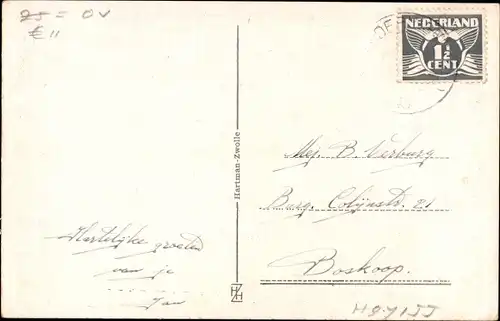 25 = OV
€ 11
NEDERLAND
1½
CENT
Hartman-Zwolle
Mej. B. Verburg
Burg. Colijnstr. 21
Boskoop.
Hartelijke groeten
van je
Jan
HZ